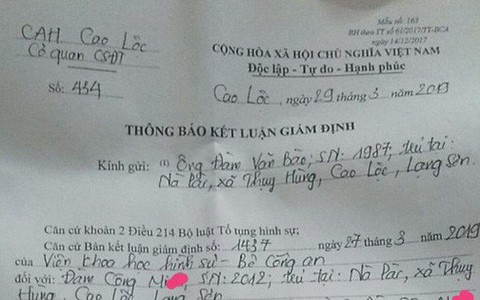 Mẫu số: 163
BH theo TT số 61/2017/TT-BCA
ngày 14/12/2017
CAH. Cao Lộc
Cơ quan CSĐT
Số: 434
CỘNG HÒA XÃ HỘI CHỦ NGHĨA VIỆT NAM
Độc lập - Tự do - Hạnh phúc
Cao Lộc, ngày 29 tháng 3 năm 2019
THÔNG BÁO KẾT LUẬN GIÁM ĐỊNH
Kính gửi: (1) Ông Đàm Văn Bảo; SN: 1987; trú tại:
Nà Pàc, xã Thụy Hùng, Cao Lộc, Lạng Sơn.
Căn cứ khoản 2 Điều 214 Bộ luật Tố tụng hình sự;
Căn cứ Bản kết luận giám định số: 1437 ngày 27 tháng 3 năm 2019
của Viện khoa học hình sự - Bộ Công an
đối với: Đàm Công, SN: 2012; trú tại: Nà Pàc, xã Thụy
Hùng, Cao Lộc, Lạng Sơn